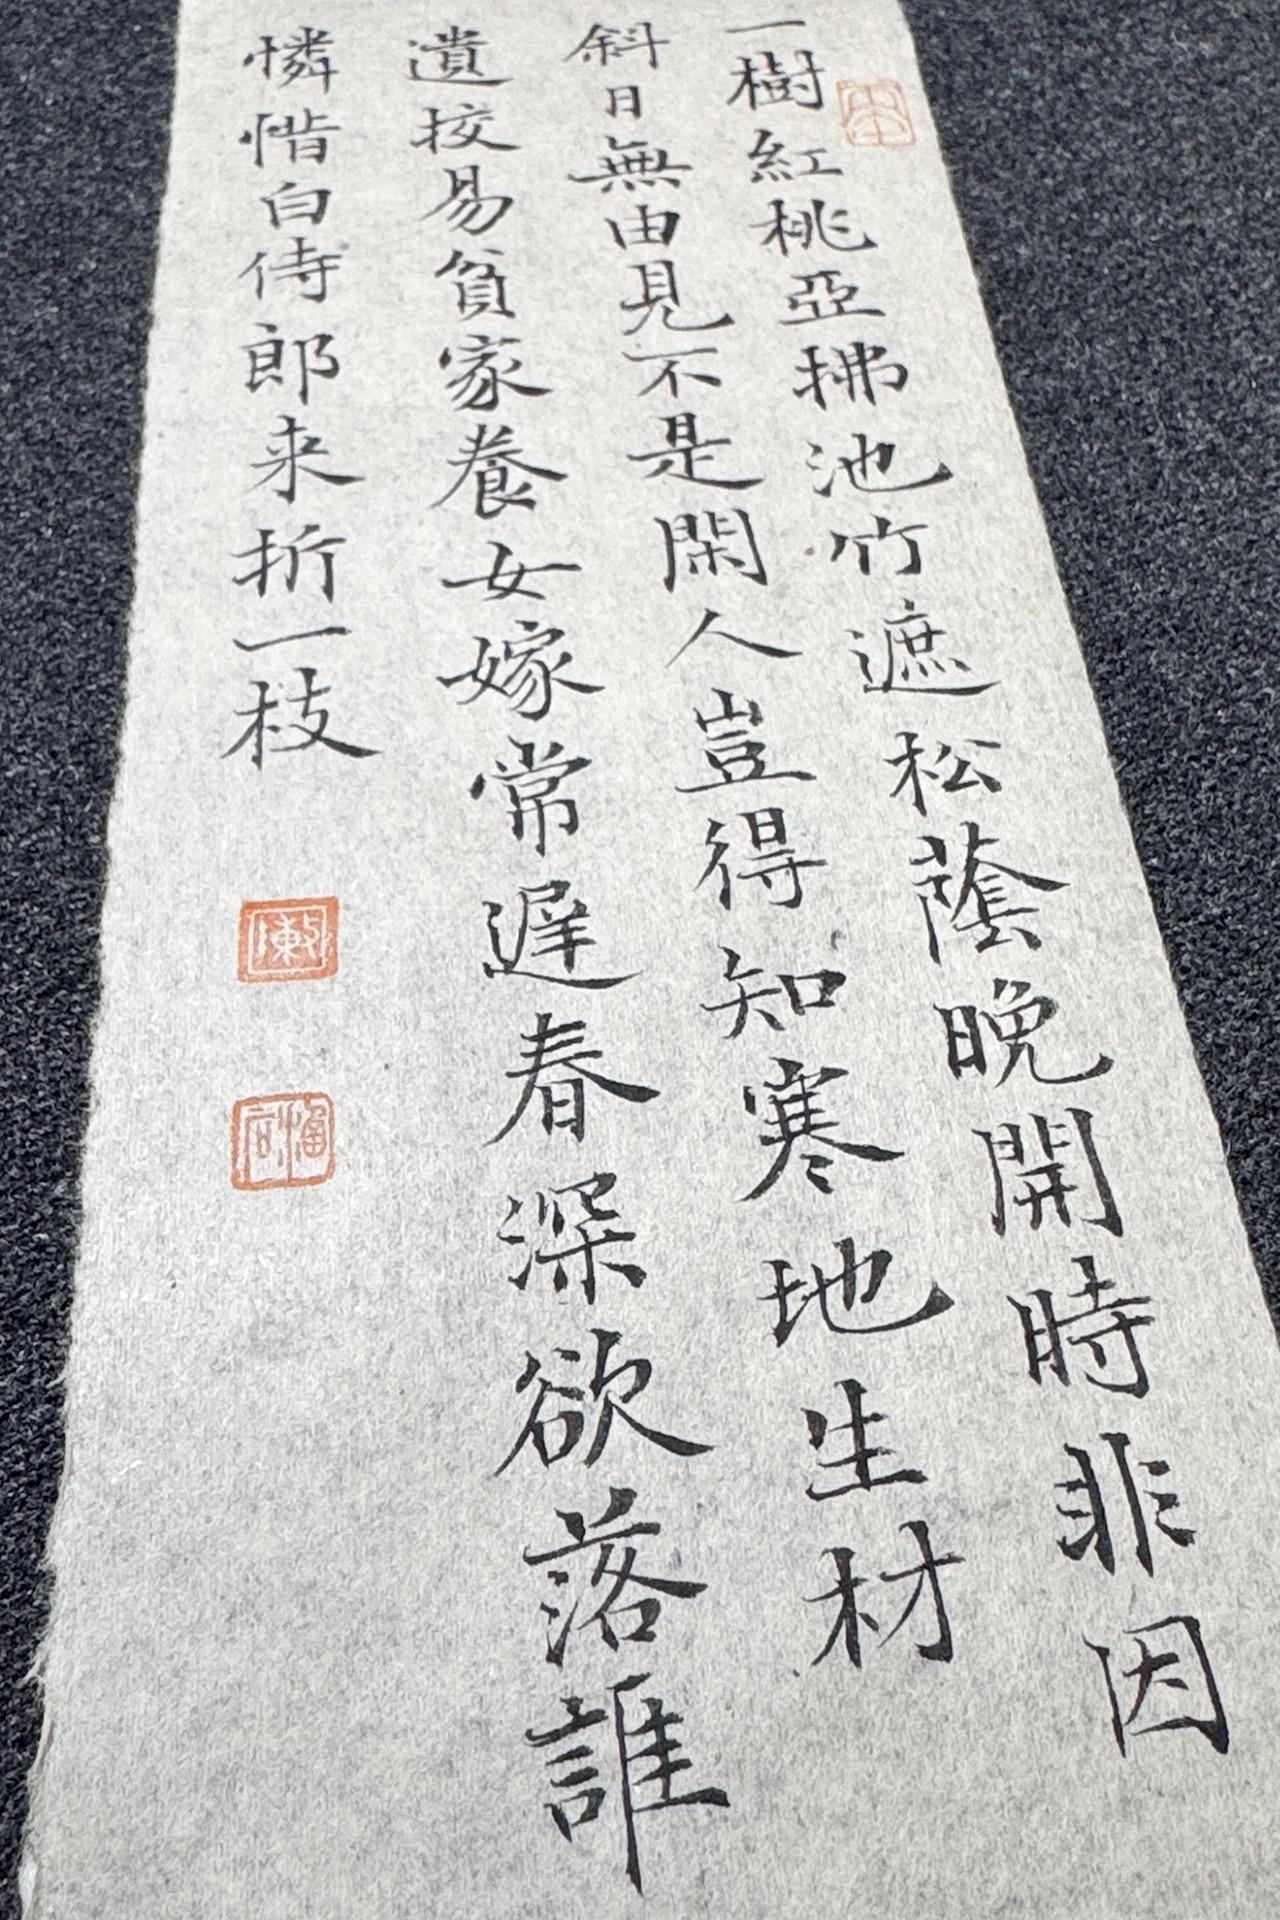 一樹紅桃亞拂池竹遮松蔭晚開時非因
斜日無由見不是閑人豈得知寒地生材
遺挍易貧家養女嫁常遲春深欲落誰
憐惜白侍郎来折一枝